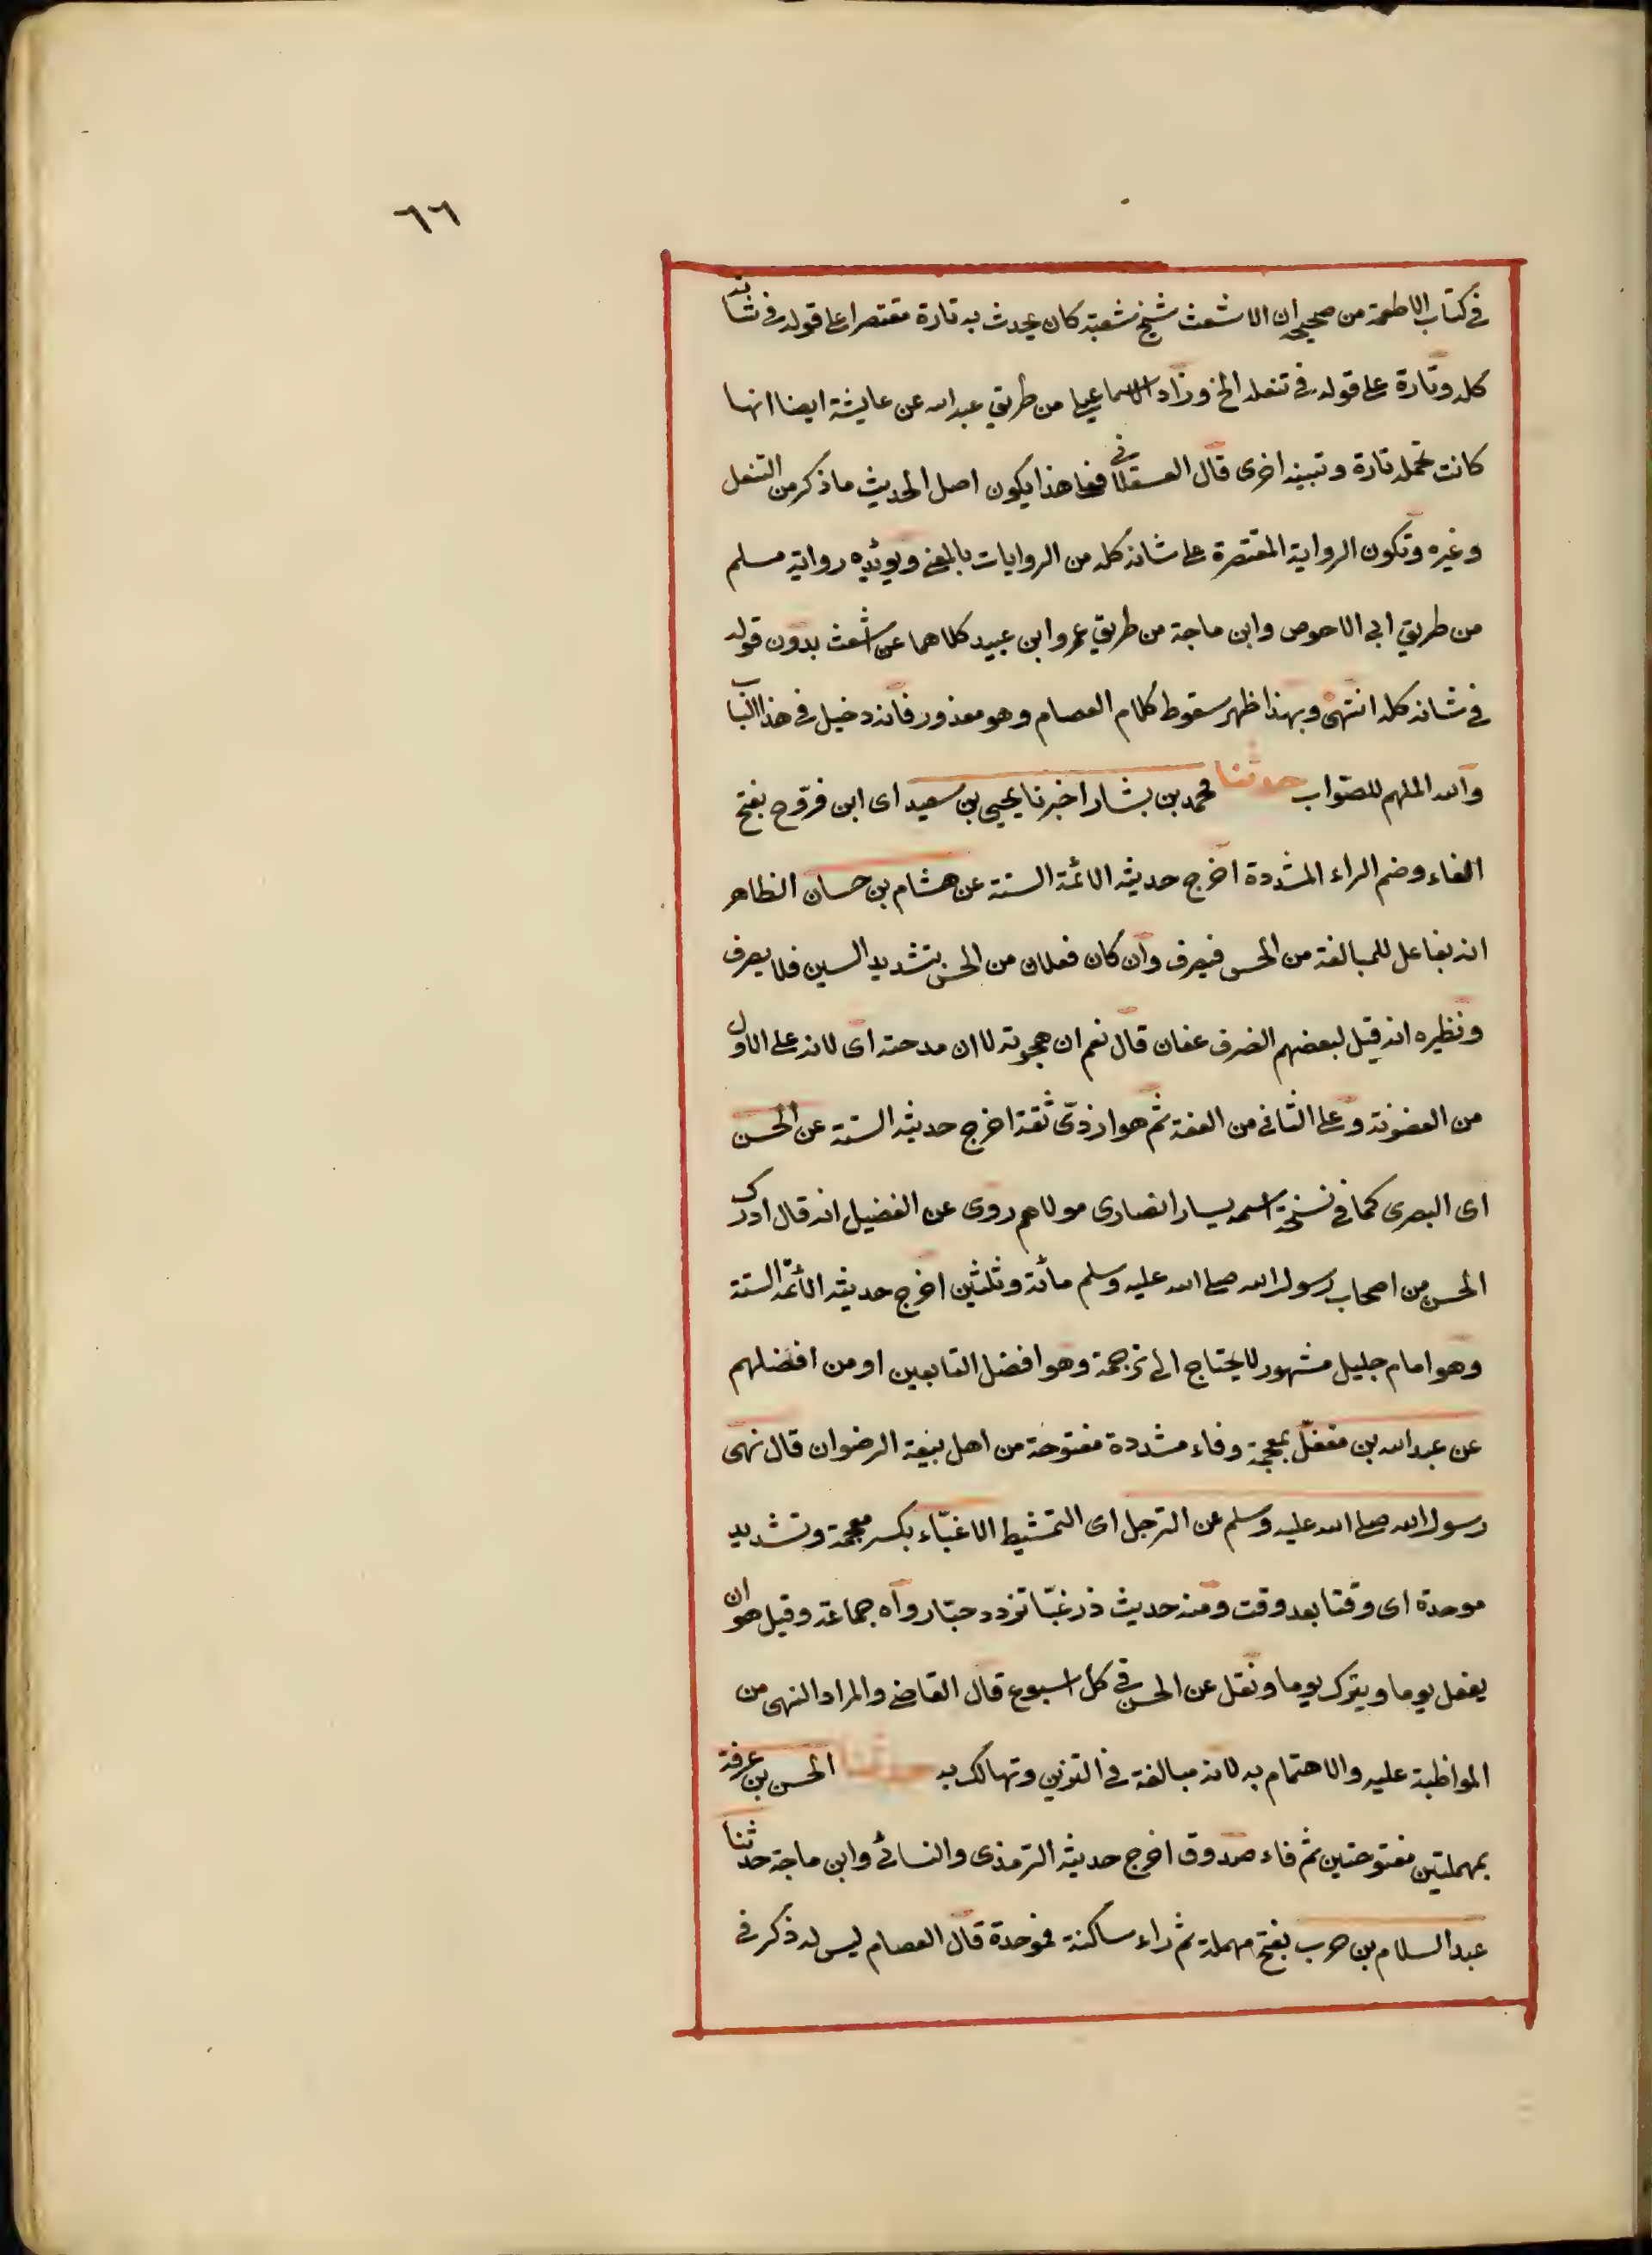 ٦٦
في كتاب الاطعمة من صحيحه ان الاشعث شيخ شعبة كان يحدث به تارة مقتصرا على قوله في شانه
كله وتارة على قوله في تنعله الخ وزاد الاسماعيلي من طريق عبد الله عن عايشة ايضا انها
كانت تجمله تارة وتبينه اخرى قال العسقلاني فعلى هذا يكون اصل الحديث ما ذكر من التنعل
وغيره وتكون الرواية المقتصرة على شانه كله من الروايات بالمعنى ويؤيده رواية مسلم
من طريق ابي الاحوص وابن ماجة من طريق عمرو ابن عبيد كلاهما عن اشعث بدون قوله
في شانه كله انتهى وبهذا ظهر سقوط كلام العصام وهو معذور فانه دخيل في هذا الباب
والله الملهم للصواب حدثنا محمد بن بشار اخبرنا يحيى بن سعيد اى ابن فرّوخ بفتح
الفاء وضم الراء المشددة اخرج حديثه الائمة الستة عن هشام بن حسان الظاهر
انه فعال للمبالغة من الحسن فيصرف وان كان فعلان من الحس بتشديد السين فلا يصرف
ونظيره انه قيل لبعضهم اتصرف عفان قال نعم ان هجوته لا ان مدحته اى لانه على الاول
من العفونة وعلى الثاني من العفة ثم هو ازدىّ ثقة اخرج حديثه الستة عن الحسن
اى البصرى كما في نسخة اسمه يسار انصارى مولاهم روى عن الفضيل انه قال ادرك
الحسن من اصحاب رسول الله صلى الله عليه وسلم مائة وثلثين اخرج حديثه الائمة الستة
وهو امام جليل مشهور لا يحتاج الى ترجمة وهو افضل التابعين او من افضلهم
عن عبد الله بن مغفّل بمعجمة وفاء مشددة مفتوحة من اهل بيعة الرضوان قال نهى
رسول الله صلى الله عليه وسلم عن الترجل اى التمشيط الا غبّاء بكسر معجمة وتشديد
موحدة اى وقتا بعد وقت ومنه حديث زر غبّا تزدد حبّا رواه جماعة وقيل هو ان
يفعل يوما ويترك يوما ونقل عن الحسن في كل اسبوع قال القاضي والمراد النهى من
المواظبة عليه والاهتمام به لانه مبالغة في التزين وتهالك به حدثنا الحسن بن عرفة
بمهملتين مفتوحتين ثم فاء صدوق اخرج حديثه الترمذى والنسائى وابن ماجة حدثنا
عبد السلام بن حرب بفتح مهملة ثم راء ساكنة فموحدة قال العصام ليس له ذكر في